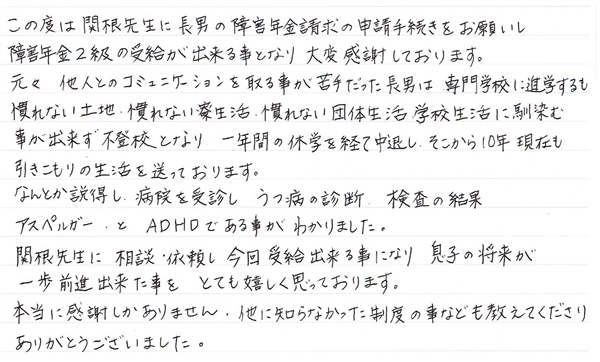 この度は関根先生に長男の障害年金請求の申請手続きをお願いし
障害年金2級の受給が出来る事となり大変感謝しております。
元々 他人とのコミュニケーションを取る事が苦手だった長男は 専門学校に進学するも
慣れない土地・慣れない寮生活・慣れない団体生活・学校生活に馴染む
事が出来ず 不登校となり 一年間の休学を経て中退し、そこから10年 現在も
引きこもりの生活を送っております。
なんとか説得し、病院を受診し うつ病の診断、検査の結果
アスペルガー・と ADHDである事が わかりました。
関根先生に 相談・依頼し 今回 受給出来る事になり 息子の将来が
一歩前進出来た事を とても嬉しく思っております。
本当に感謝しかありません、他に知らなかった制度の事なども教えてくださり
ありがとうございました。